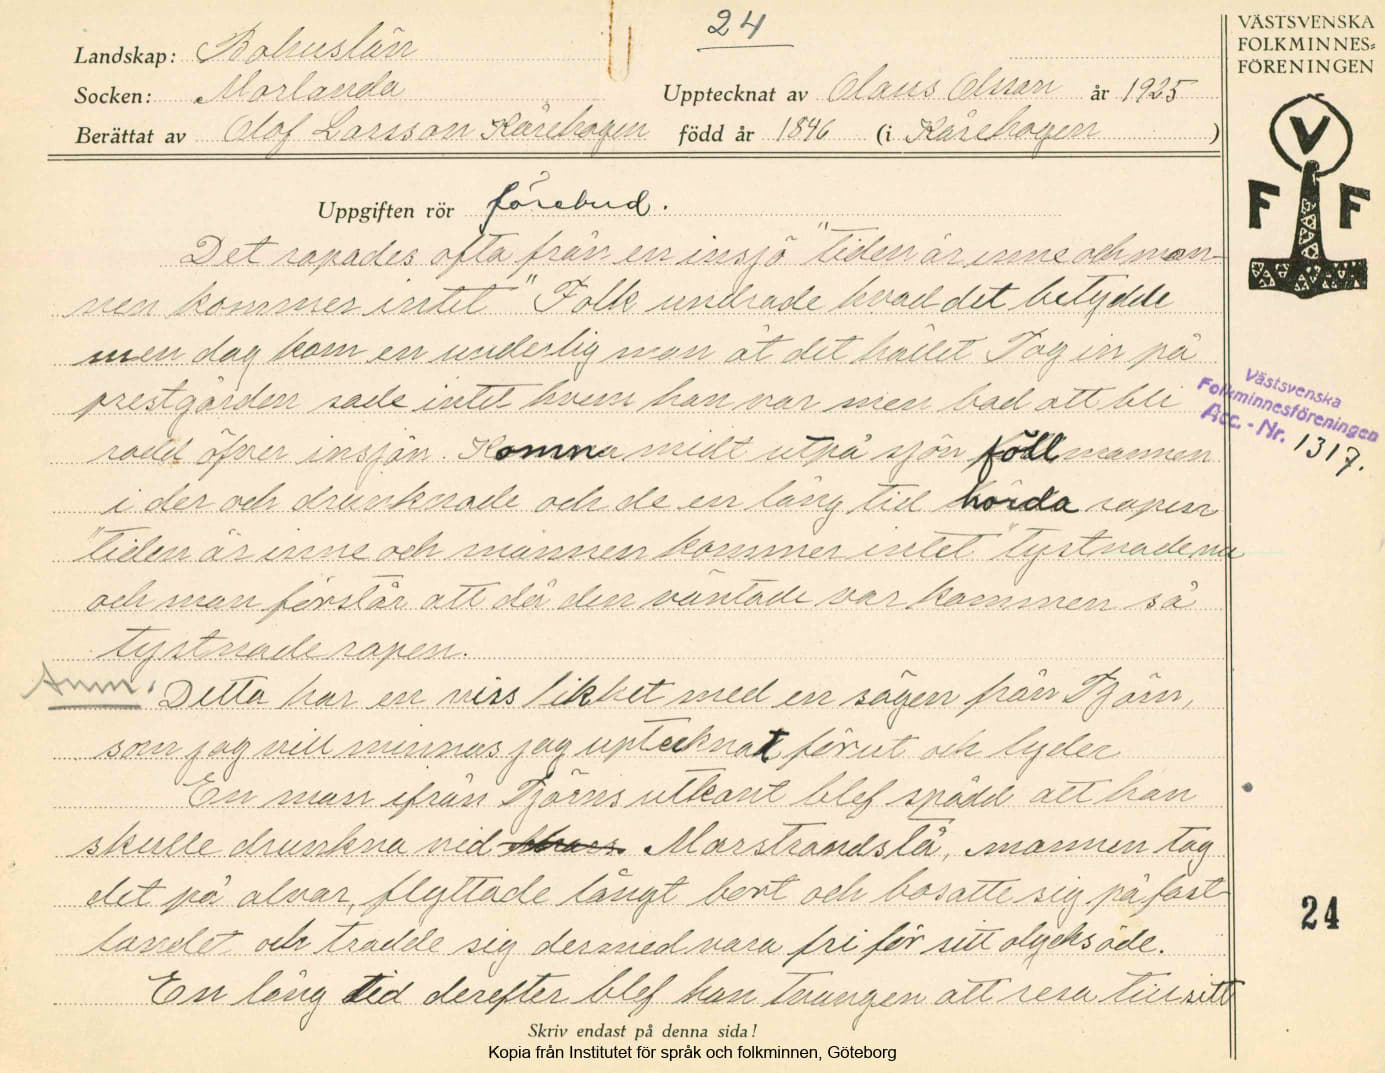 24
Landskap: Bohuslän
Socken: Morlanda
Upptecknat av Olaus Olsson år 1925
Berättat av Olof Larsson Kårehogen född år 1846 (i Kårehogen )
VÄSTSVENSKA
FOLKMINNES-
FÖRENINGEN
V
F F
Uppgiften rör förebud.
Det ropades ofta från en insjö "tiden är inne och man-
nen kommer intet" Folk undrade hvad det betydde
men dag kom en underlig man åt det hållet Tog in på
prestgården sade intet hvem han var men bad att bli
rodd öfver insjön. Komna midt utpå sjön föll mannen
i der och drunknade och de en lång tid hörda ropen
"tiden är inne och mannen kommer intet" tystnade nu
och man förstår att då den väntade var kommen så
tystnade ropen.
Anm. Detta har en viss likhet med en sägen från Tjörn,
som jag vill minnas jag uptecknat förut och lyder
En man ifrån Tjörns utkant blef spådd att han
skulle drunkna vid Marstrandstå, mannen tog
det på alvar, flyttade långt bort och bosatte sig på fast-
landet och trodde sig dermed vara fri för sitt olycksöde.
En lång tid derefter blef han tvungen att resa till sitt
Västsvenska
Folkminnesföreningen
Acc. - Nr. 1317.
24
Skriv endast på denna sida!
Kopia från Institutet för språk och folkminnen, Göteborg